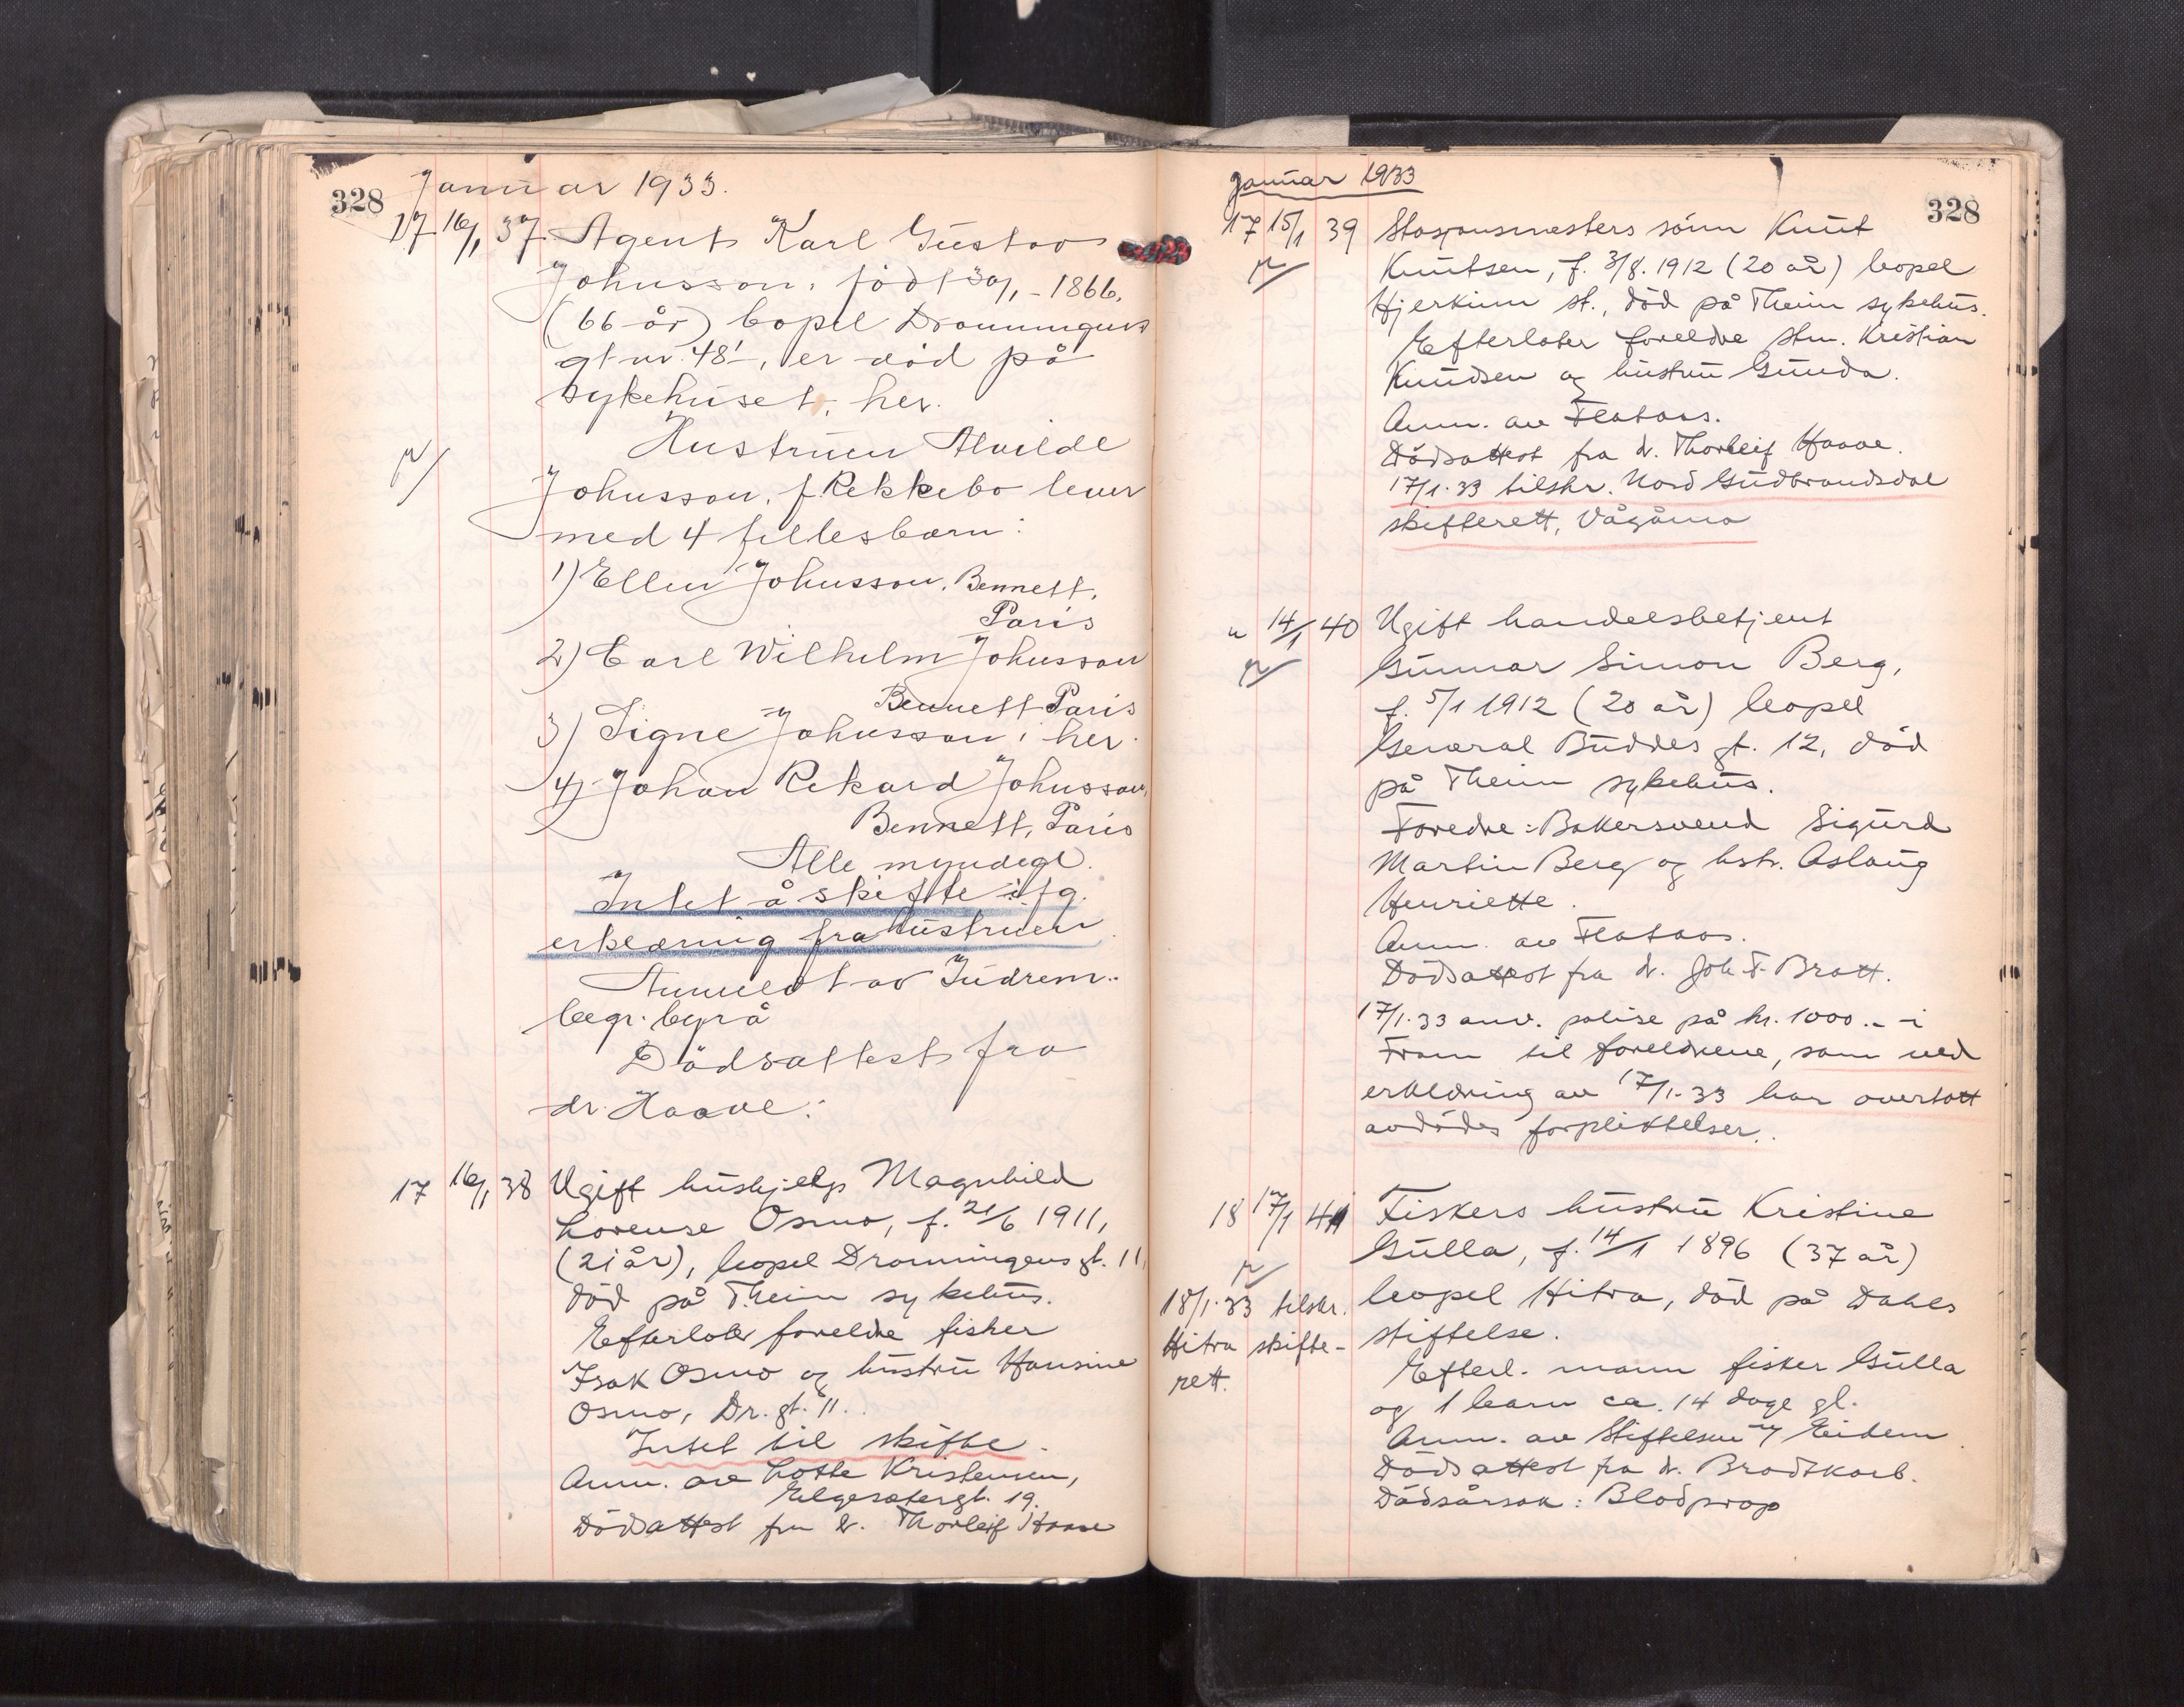 328 Januar 1933.
17 16/1 37 Agent Karl Gustav
Johnsson, född 30/1 - 1866.
(66 år) bopel Dronningens
gt nr. 48 I, er död på
sykehuset, her.
Hustruen Alvilde
Johnsson, f. Rekkebo lever
med 4 fellesbarn:
1) Ellen Johnsson, Bennett,
Paris
2) Carl Wilhelm Johnsson
Bennett Paris
3) Signe Johnsson, her.
4) Johan Rikard Johnsson,
Bennett, Paris
Alle myndige.
Intet å skifte ifg.
erklæring fra hustruen.
Anmeldt av Indrem..
begr. byrå
Dödsattest fra
dr. Haave.
17 16/1 38 Ugift hushjelp Magnhild
Lovense Osmo, f. 21/6 1911,
(21 år), bopel Dronningens gt. 11,
död på Th.eim sykehus.
Efterlater foreldre fisker
Isak Osmo og hustru Hansine
Osmo, Dr. gt. 11.
Intet til skifte.
Anm. av Lotte Kristensen,
Elgesetergt. 19.
Dödsattest fra dr. Thorleif Haave
Januar 1933 328
17 15/1 39 Stasjonsmesters sönn Knut
Knutsen, f. 3/8. 1912 (20 år) bopel
Hjerkinn st., död på Th.eim sykehus.
Efterlater foreldre stm. Kristian
Knudsen og hustru Gunda.
Anm. av Flataas.
Dödsattest fra dr. Thorleif Haave.
17/1.33 tilskr. Nord Gudbrandsdal
skifterett, Vågåmo
" 14/1 40 Ugift handelsbetjent
Gunnar Simon Berg,
f. 5/1 1912 (20 år) bopel
General Buddes gt. 12, död
på Th.eim sykehus.
Foredre: Bakersvend Sigurd
Martin Berg og hstr. Aslaug
Henriette.
Anm. av Flataas.
Dödsattest fra dr. Joh. T. Bratt.
17/1.33 anv. polise på kr. 1000.- i
Fram til foreldrene, som ved
erklæring av 17/1-33 har overtatt
avdödes forpliktelser.
18 17/1 41 Fiskers hustru Kristine
Gulla, f. 14/1 1896 (37 år)
18/1.33 tilskr. bopel Hitra, död på Dahls
Hitra skifte- stiftelse.
rett. Efterl. mann fisker Gulla
og 1 barn ca. 14 dage gl.
Anm. av Stiftelsen v/ Eidem.
Dödsattest fra dr. Brodtkorb.
Dödsårsak: Blodprop